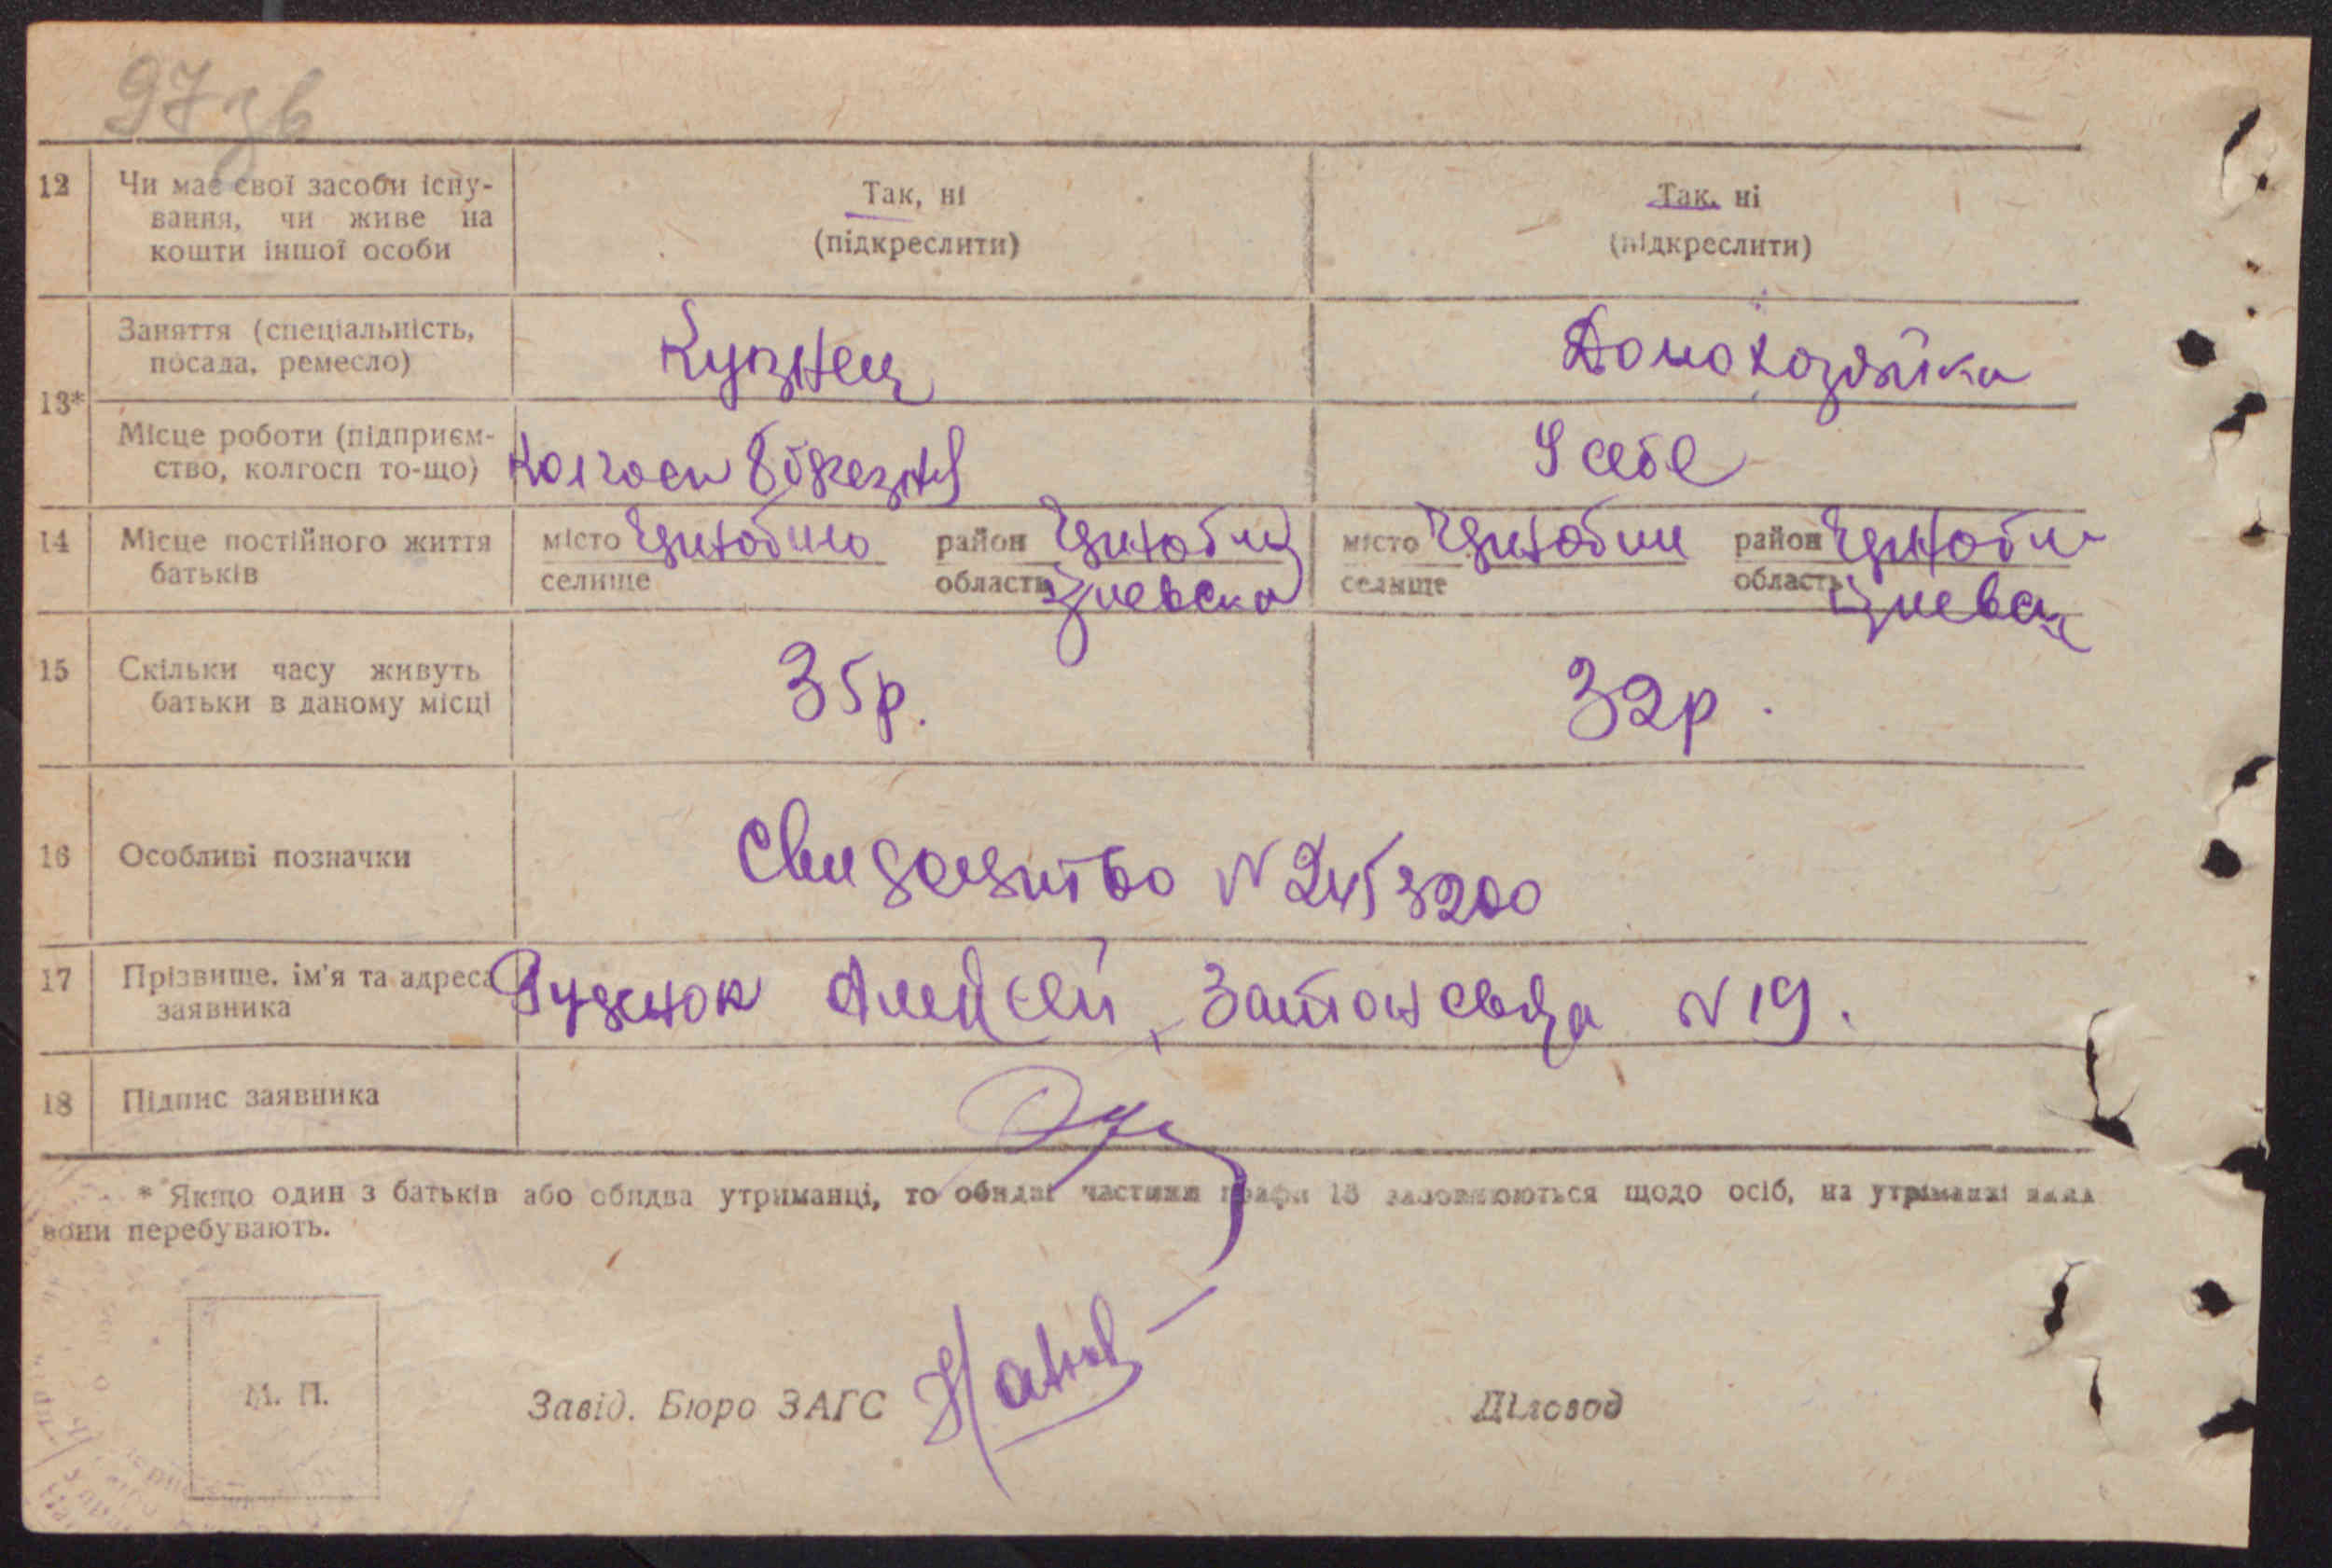 97 зв
12 Чи має свої засоби існу-
вання, чи живе на
кошти іншої особи
Так, ні
(підкреслити)
Так, ні
(підкреслити)
13*
Заняття (спеціальність,
посада, ремесло)
Кузнец
Домохозяйка
Місце роботи (підприєм-
ство, колгосп то-що)
У себе
14 Місце постійного життя
батьків
місто
селище
район
область
місто
селище
район
область
15 Скільки часу живуть
батьки в даному місці
35р.
32р.
16 Особливі позначки
N 2453200
17 Прізвище, ім'я та адреса
заявника
Руденок Алексей, N 19.
18 Підпис заявника
* Якщо один з батьків або обидва утриманці, то обидві частини графи 13 заповнюються щодо осіб, на утриманні яких
вони перебувають.
М. П.
Завід. Бюро ЗАГС
Діловод